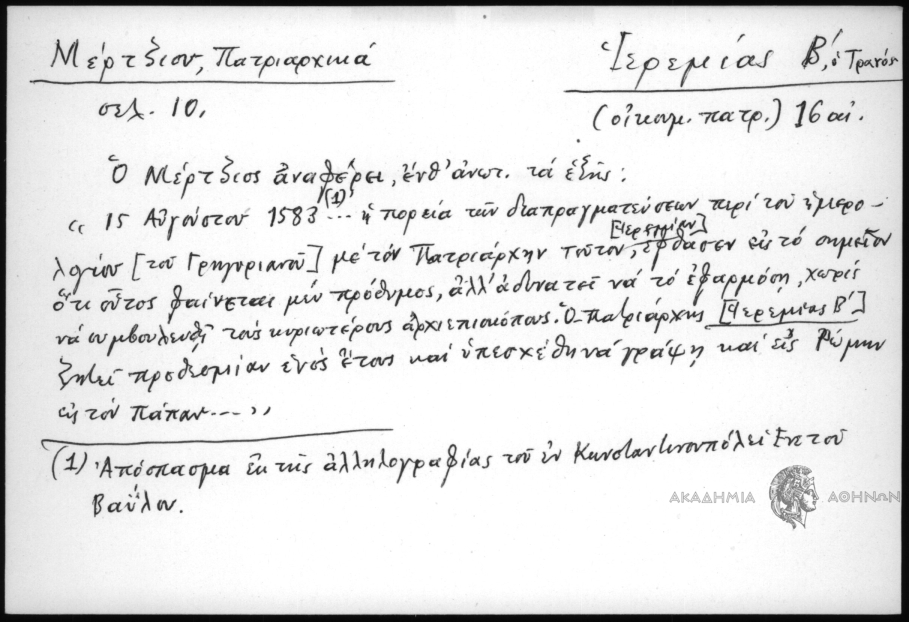 Μέρτζιου, Πατριαρχικά
Ἱερεμίας Β΄, ὁ Τρανός
σελ. 10.
(οἰκουμ. πατρ.) 16 αἰ.
Ὁ Μέρτζιος ἀναφέρει, ἔνθ' ἀνωτ. τά ἑξῆς:
« 15 Αὐγούστου 1583 (1) ... ἡ πορεία τῶν διαπραγματεύσεων περί τοῦ ἡμερο-
λογίου [τοῦ Γρηγοριανοῦ] μέ τόν Πατριάρχην τοῦτον [Ἱερεμίαν], ἔφθασεν εἰς τό σημεῖον
ὅτι οὗτος φαίνεται μέν πρόθυμος, ἀλλ' ἀδυνατεῖ νά τό ἐφαρμόσῃ, χωρίς
νά συμβουλευθῇ τούς κυριωτέρους ἀρχιεπισκόπους. Ὁ Πατριάρχης [Ἱερεμίας Β΄]
ζητεῖ προθεσμίαν ἑνός ἔτους καί ὑπεσχέθη νά γράψῃ καί εἰς Ρώμην
εἰς τόν Πάπαν ... »
(1) Ἀπόσπασμα ἐκ τῆς ἀλληλογραφίας τοῦ ἐν Κωνσταντινουπόλει
Βαΐλου.
ΑΚΑΔΗΜΙΑ ΑΘΗΝΩΝ